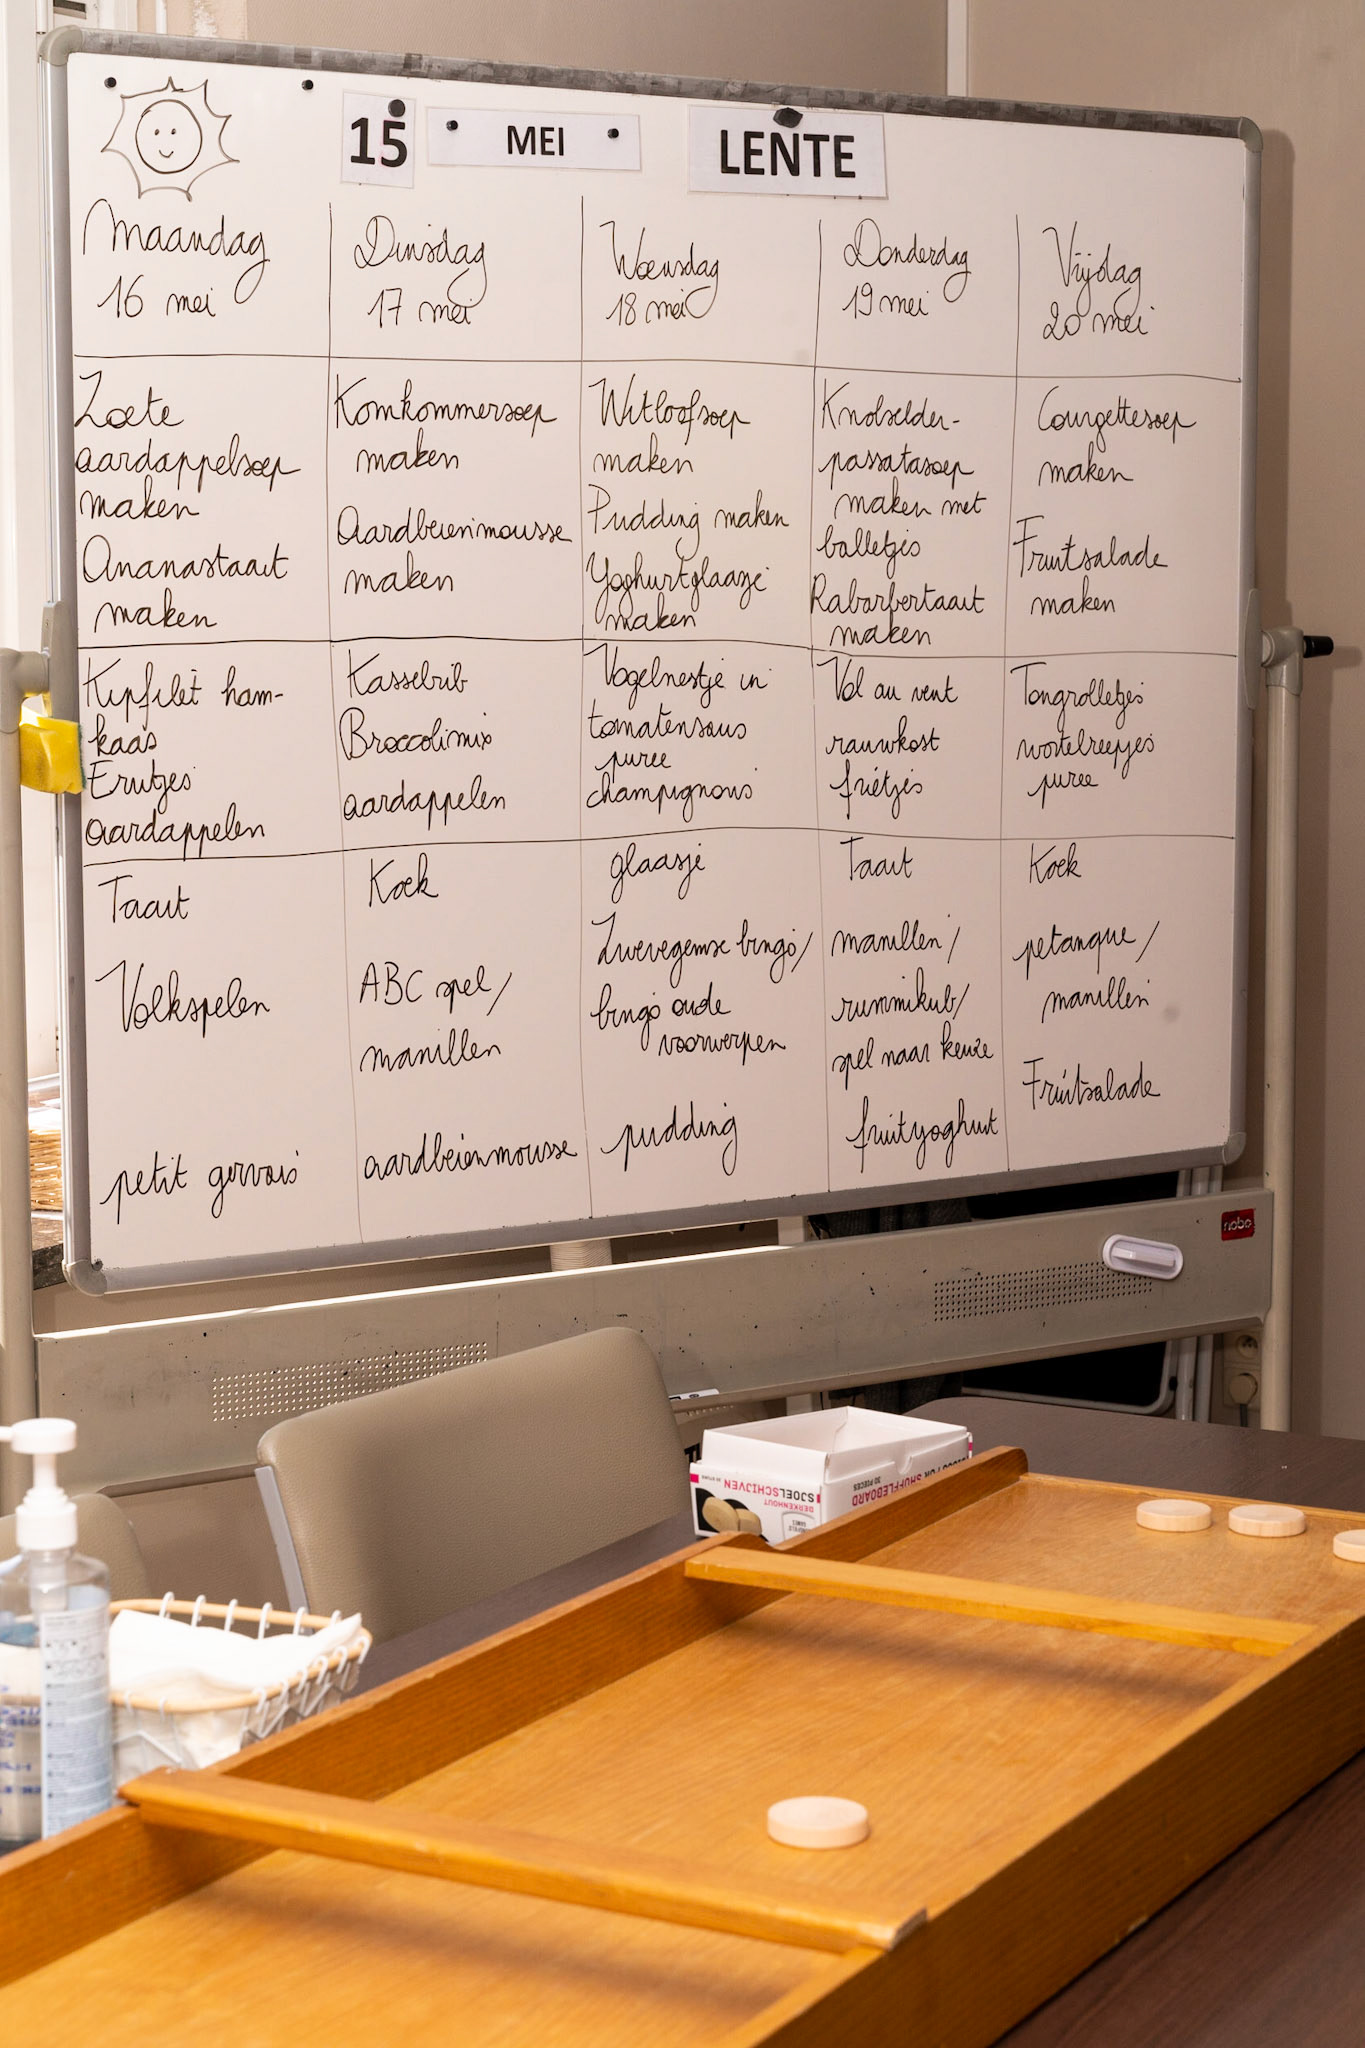 15 MEI LENTE
Maandag
16 mei
Dinsdag
17 mei
Woensdag
18 mei
Donderdag
19 mei
Vrijdag
20 mei
Zoete
aardappelsoep
maken
Ananastaart
maken
Komkommersoep
maken
Aardbeienmousse
maken
Witloofsoep
maken
Pudding maken
Yoghurtglaasje
maken
Knolselder-
passatasoep
maken met
balletjes
Rabarbertaart
maken
Courgettesoep
maken
Fruitsalade
maken
Kipfilet ham-
kaas
Erwtjes
aardappelen
Kasselrib
Broccolimix
aardappelen
Vogelnestje in
tomatensaus
puree
champignons
Vol au vent
rauwkost
frietjes
Tongrolletjes
wortelreepjes
puree
Taart
Volkspelen
petit gervais
Koek
ABC spel/
manillen
aardbeienmousse
glaasje
Zwevegemse bingo/
bingo oude
voorwerpen
pudding
Taart
manillen/
rummikub/
spel naar keuze
fruityoghurt
Koek
petanque/
manillen
Fruitsalade
nobo
BERKENHOUT
SJOELSCHIJVEN
FOR SHUFFLEBOARD
30 PIECES